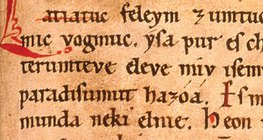 Latiatuc feleym zumtuc
mic vogmuc. ysa pur es ch
terumteve eleve miv isem
paradisumut hazoa. Es m
munda neki elnie. Heon